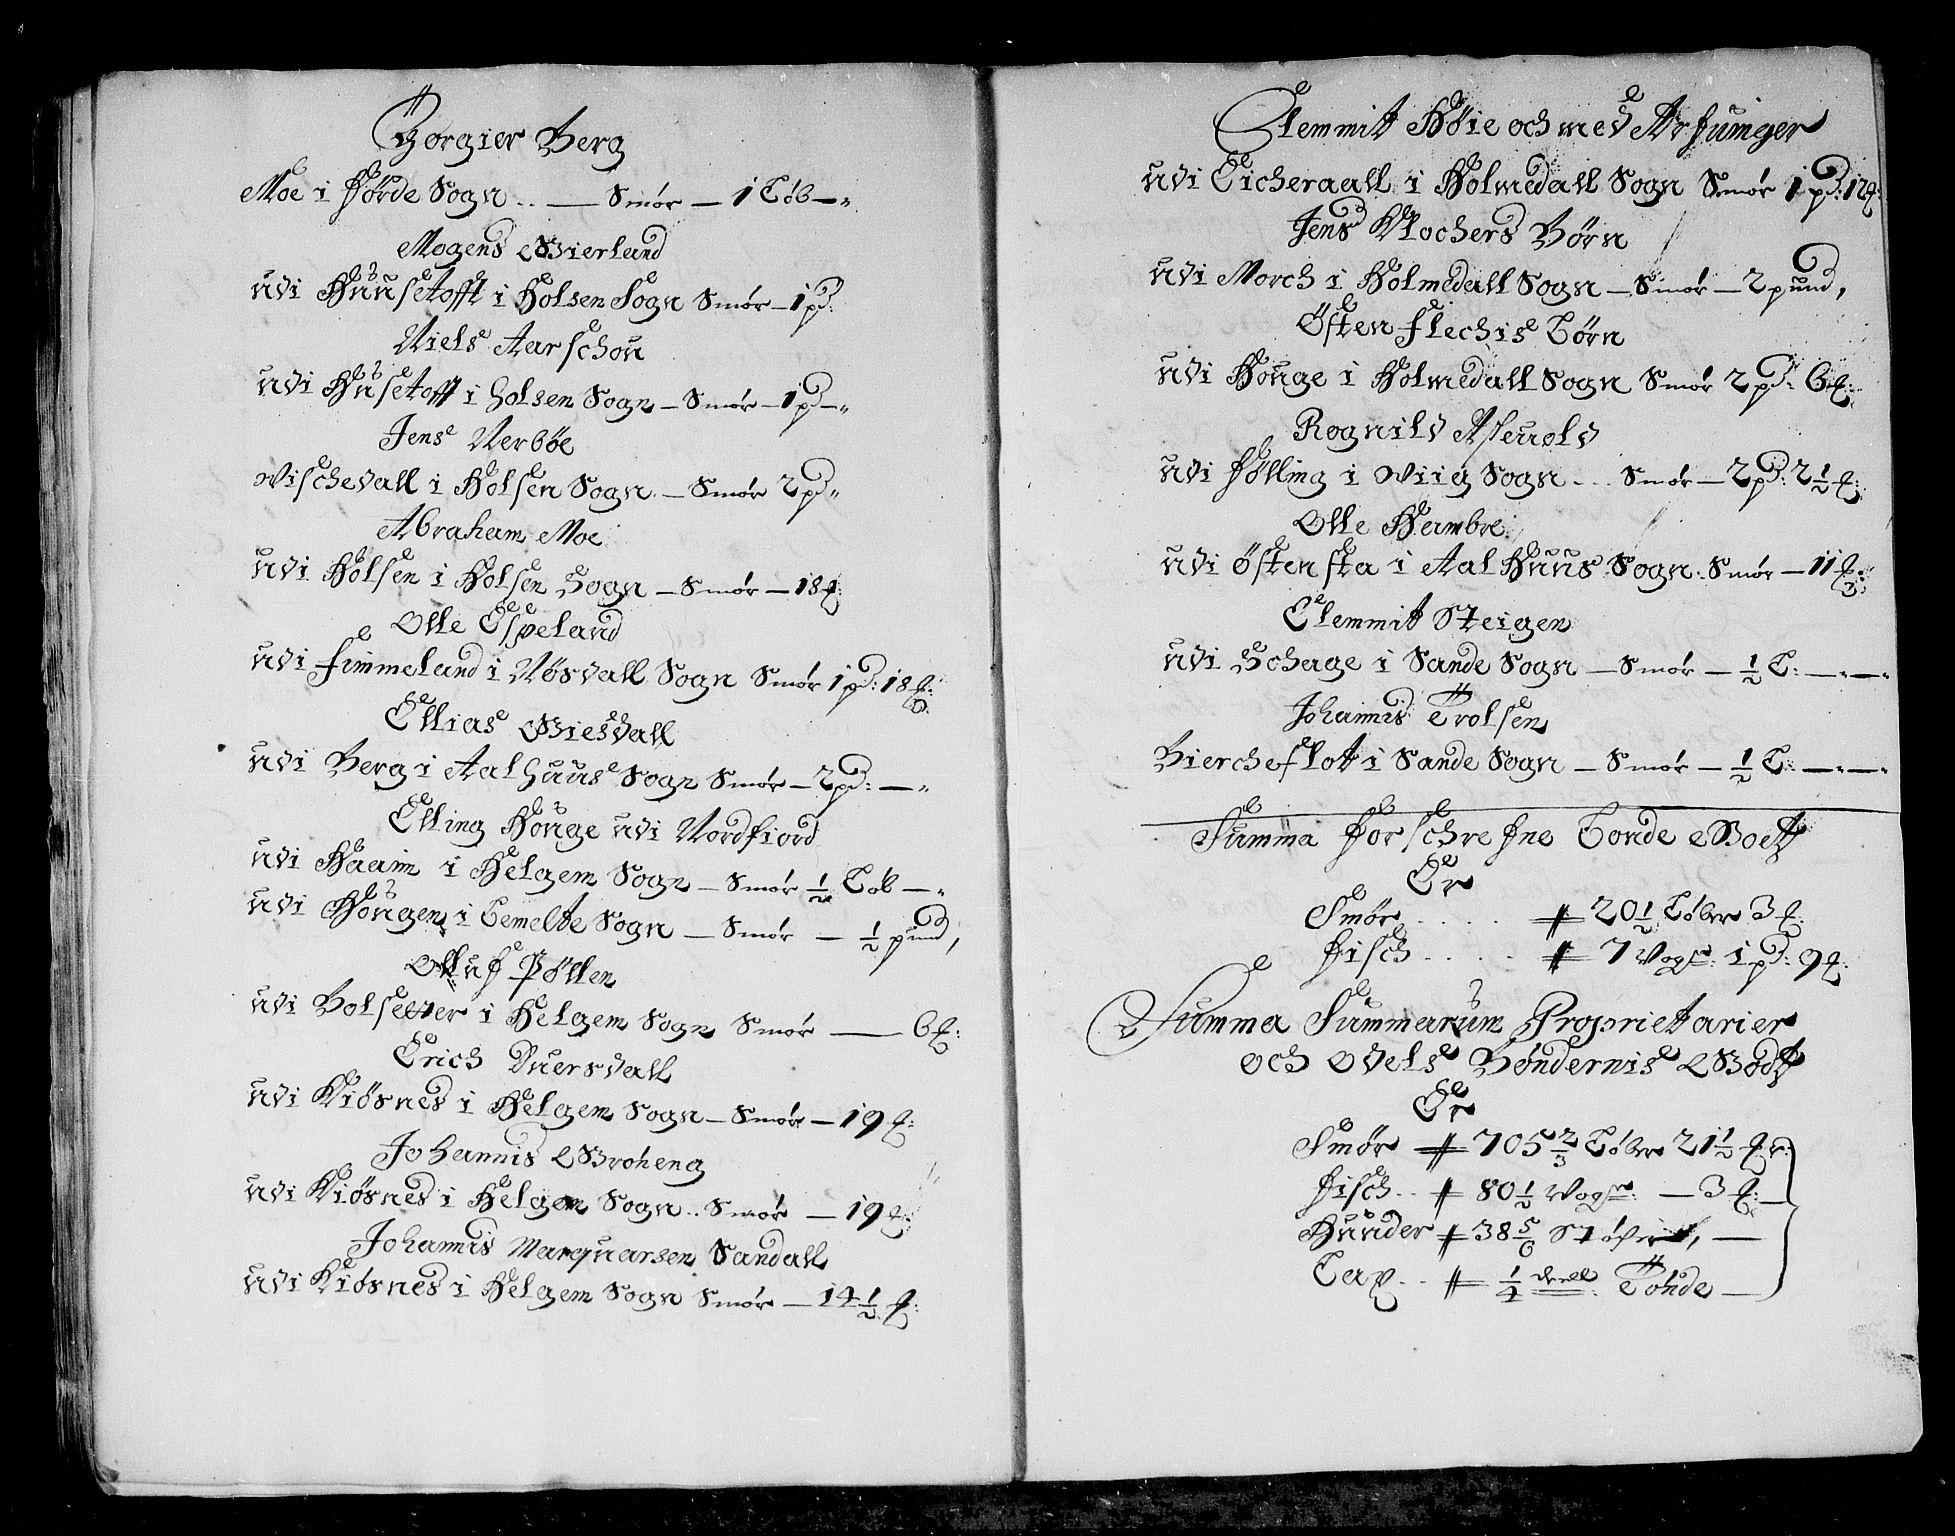 Børgier Berg
Moe i Førde Sogn .. — Smør — 1 Løb —„
Mogens Gierland
udi Huusetofft i Holsen Sogn Smør — 1 pd:
Niels Aarschou
udi Husetofft i Holsen Sogn — Smør — 1 pd —„
Jens Nerbøe
Vischedall i Holsen Sogn — Smør 2 pd„
Abraham Moe
udi Holsen i Holsen Sogn — Smør — 18 ℔:
Olle Espeland
udi Fimmeland i Nøsdall Sogn Smør 1 pd: 18 ℔:
Ellias Giesdall
udi Berg i Aalhuus Sogn Smør — 2 pd: —„
Elling Houge udi Nordfiord
udi Haaim i Helgem Sogn — Smør ½ Løb —„
udi Hougen i Sogn — Smør — ½ pund,
Olluf Pøllen
udi Bolsetter i Helgem Sogn Smør — 6 ℔:
Erich Duersdall
udi Kiøsnes i Helgem Sogn — Smør — 19 ℔:
Johannis Groheng
udi Kiøsnes i Helgem Sogn .. Smør — 19 ℔:
Johannis Marquarsen Sandall
udi Kiøsnes i Helgem Sogn Smør — 14½ ℔:
Clemmit Høie och med Arfuinger
udi Eicheraall i Holmedall Sogn Smør 1 pd: 12 ℔:
Jens Klochers Børn
udi Morch i Holmedall Sogn — Smør — 2 pund,
Østen Flechis Børn
udi Houge i Holmedall Sogn Smør 2 pd: 6 ℔:
Rognild Afeuold
udi Følling i Viig Sogn .. Smør — 2 pd: 2½ ℔:
Olle Hambre
udi Østensta i Aalhuus Sogn Smør — 11 ℔:
Clemmit Steigen
udi Schage i Sande Sogn — Smør — ½ L: —„—„
Johannis Trolsen
Biercheflot i Sande Sogn — Smør — ½ L: —„—„
Summa forschrefne Bonde Goetz
Er
Smør .... 20½ Løber 3 ℔:
Fisch .... 7 Voger: 1 pd: 9 ℔:
Summa Summarum Proprietarier
och Odels Bøndernis Godtz
Er
Smør 705⅔ Løber 21½ ℔r:
Fisch .. 80½ Voger: — 3 ℔: —
Huuder 38 5/6 —
.. ¼ deell Tønde —